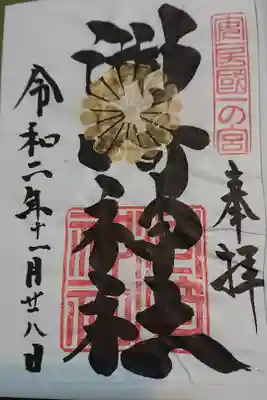 安房國一の宮
奉拝
洲崎神社
令和二年十一月廿八日